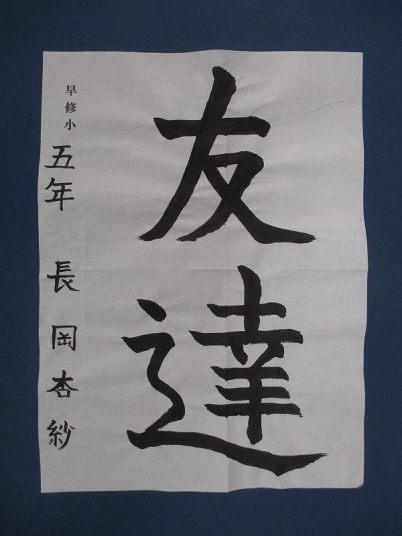 友達
早修小 五年 長岡杏紗